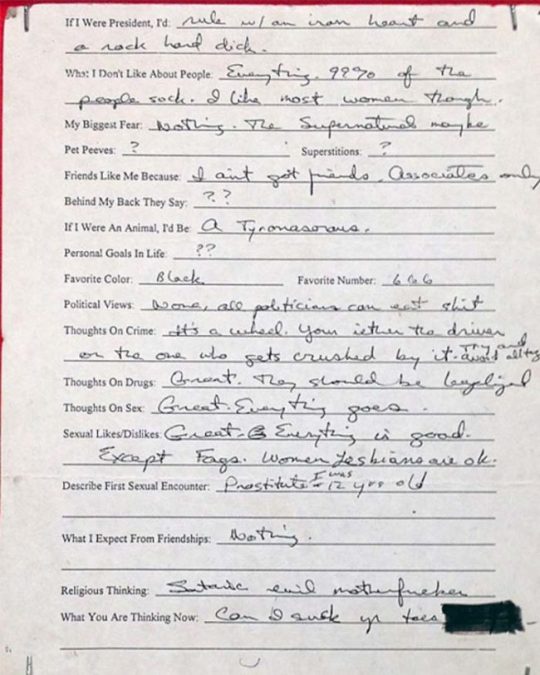 If I Were President, I'd: rule w/ an iron heart and
a rock hard dick.
What I Don't Like About People: Everything. 99% of the
people suck. I like most women though.
My Biggest Fear: Nothing. The Supernatural maybe
Pet Peeves: ? Superstitions: ?
Friends Like Me Because: I aint got friends. Associates only
Behind My Back They Say: ??
If I Were An Animal, I'd Be: A Tyronasorous.
Personal Goals In Life: ??
Favorite Color: Black Favorite Number: 666
Political Views: None, all politicians can eat shit
Thoughts On Crime: It's a wheel. Your iether the driver
or the one who gets crushed by it. Try and avoid
Thoughts On Drugs: Great. They should be legalized
Thoughts On Sex: Great. Everything goes.
Sexual Likes/Dislikes: Great. Everything is good.
Except Fags. Women Lesbians are ok.
Describe First Sexual Encounter: Prostitute I was 12 yrs old
What I Expect From Friendships: Nothing.
Religious Thinking: Satanic evil motherfucker
What You Are Thinking Now: Can I suck yr toes